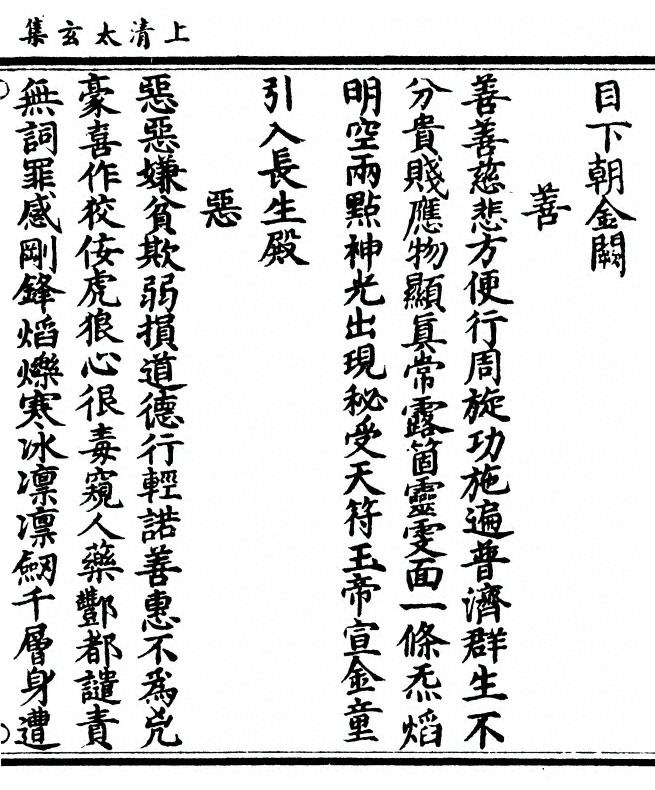 上清太玄集
目下朝金闕
善
善善慈悲方便行周旋功施遍普濟群生不
分貴賤應物顯真常露箇靈雯面一條炁熖
明空兩點神光出現秘受天符玉帝宣金童
引入長生殿
惡
惡惡嫌貧欺弱損道德行輕諾善惠不爲兇
豪喜作狡佞虎狼心很毒窺人藥酆都譴責
無詞罪感剛鋒熖爍寒冰凛凛劒千層身遭